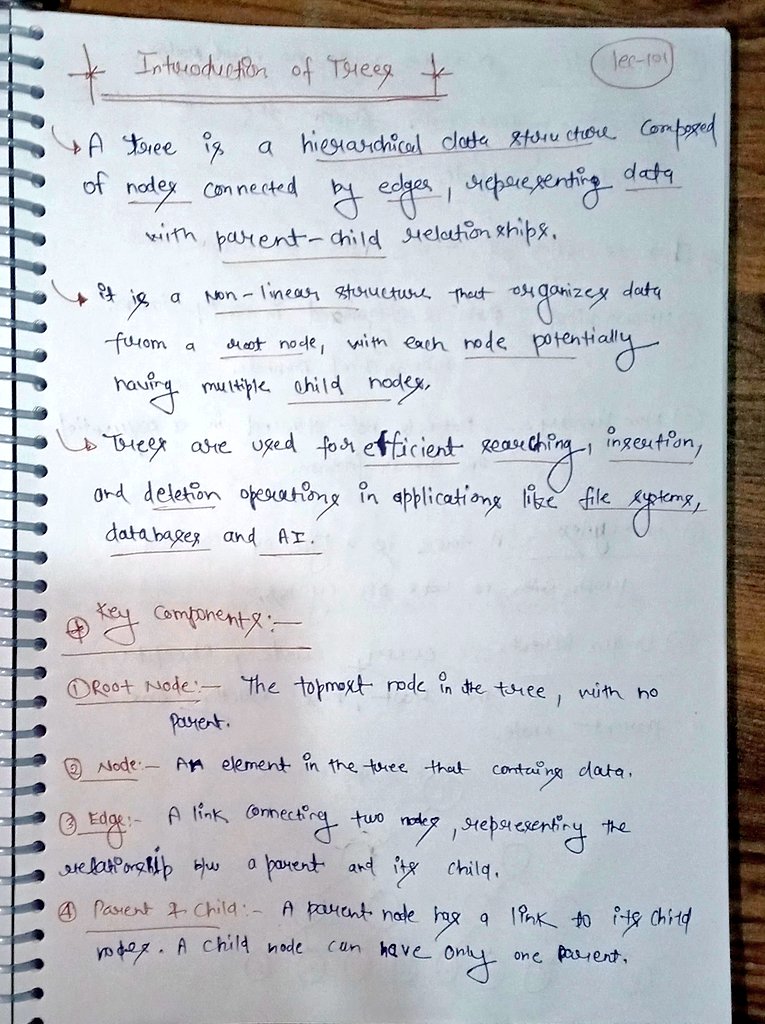 Introduction of Trees
lec-101
A tree is a hierarchical data structure composed
of nodes connected by edges, representing data
with parent-child relationships.
it is a Non-linear structure that organizes data
from a root node, with each node potentially
having multiple child nodes.
Trees are used for efficient searching, insertion,
and deletion operations in applications like file systems,
databases and AI.
Key Components:-
① Root Node:- The topmost node in the tree, with no
parent.
② Node:- An element in the tree that contains data.
③ Edge:- A link connecting two nodes, representing the
relationship b/w a parent and its child.
④ Parent & Child:- A parent node has a link to its child
nodes. A child node can have only one parent.